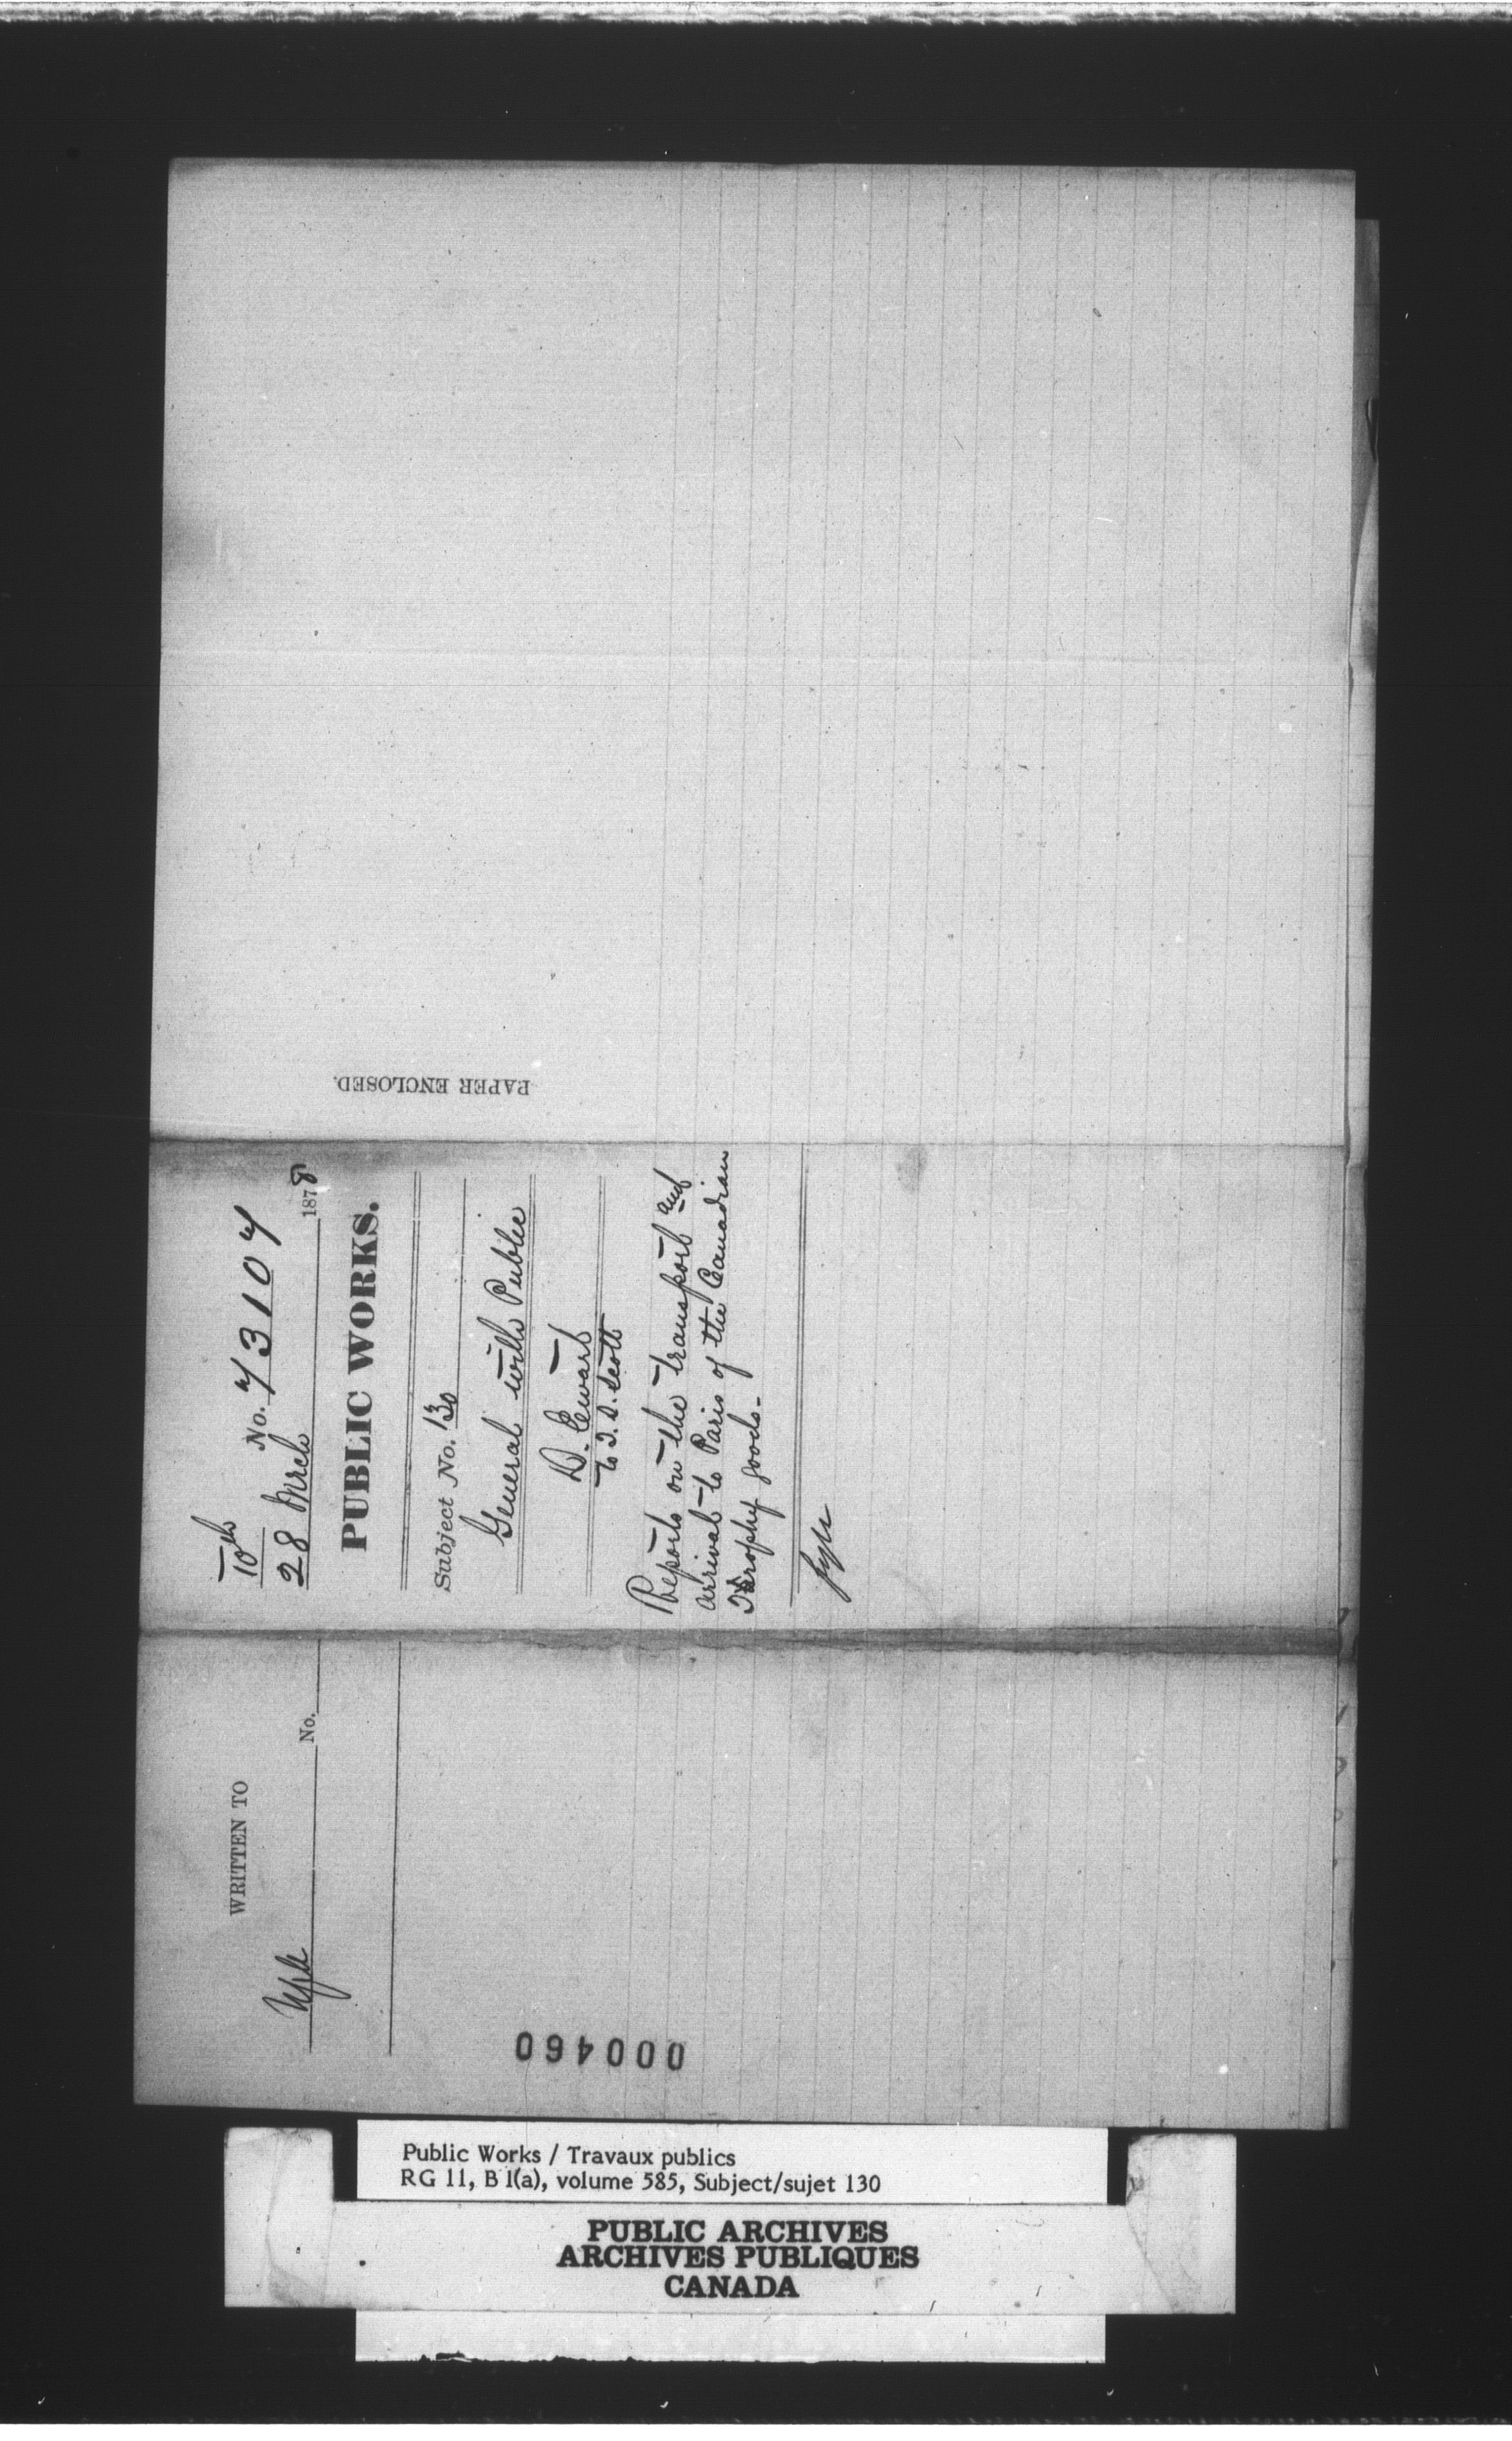 10th
No. 73107
28 March 1878
PUBLIC WORKS.
Subject No. 130
General with Public
D. Ewart
to T. S. Scott
Reports on the transport and
arrival to Paris of the Canadian
Trophy goods.
PAPER ENCLOSED.
WRITTEN TO
No.
000460
Public Works / Travaux publics
RG 11, B 1(a), volume 585, Subject/sujet 130
PUBLIC ARCHIVES
ARCHIVES PUBLIQUES
CANADA